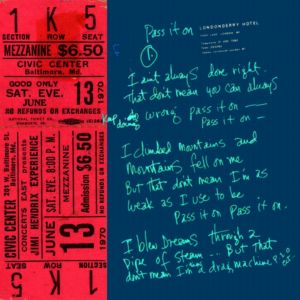 1 K 5
SECTION ROW SEAT
MEZZANINE $6.50
CIVIC CENTER
Baltimore, Md.
GOOD ONLY
SAT. EVE.
JUNE
13
1970
NO REFUNDS OR EXCHANGES
201 W. Baltimore St.
CIVIC CENTER
Baltimore, Md.
CONCERTS EAST presents
JIMI HENDRIX EXPERIENCE
SAT. EVE. 8:00 P. M.
JUNE
13
1970
MEZZANINE
Admission $6.50
NO REFUNDS OR EXCHANGES
1 K 5
LONDONDERRY HOTEL
Pass it on
1
I aint always done right
that dont mean you can always
keep doing wrong Pass it on
Pass it on
I climbed mountains and
mountains fell on me
But that dont mean I'm as
weak as I use to be
Pass it on Pass it on.
I blew Dreams through a
Pipe of steam... But That
don't mean I'm a drag machine